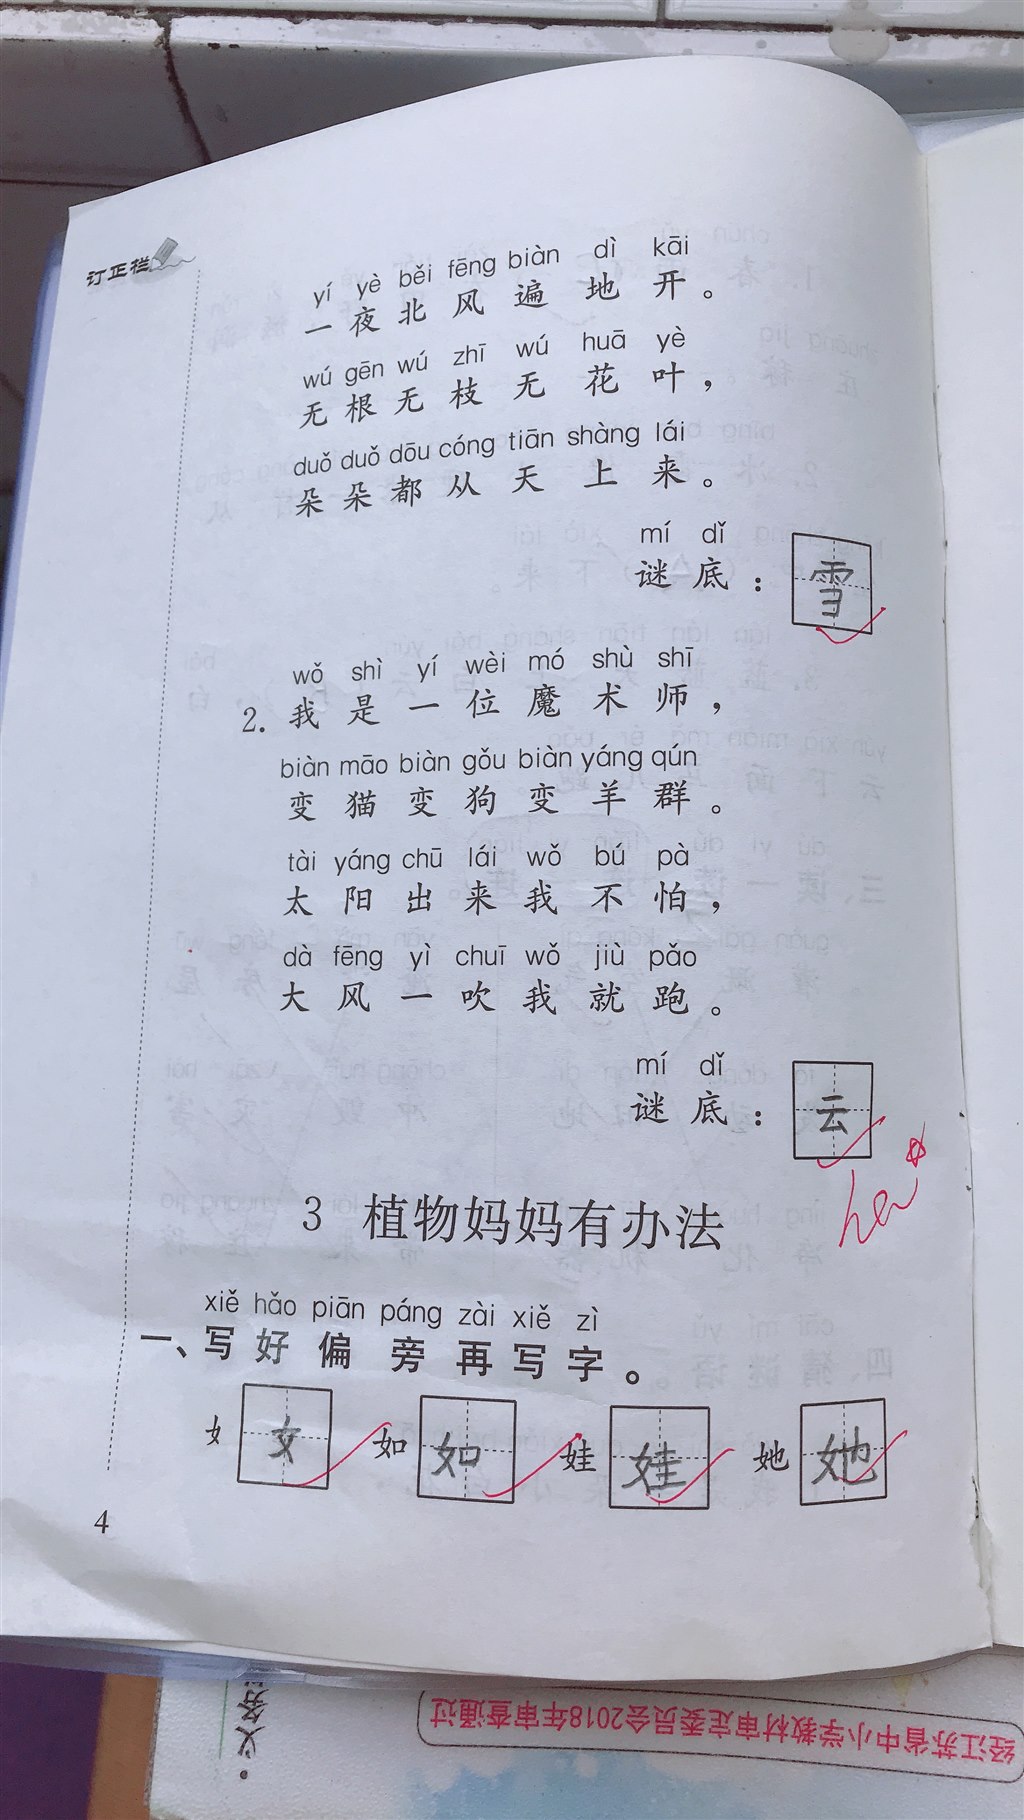 订正栏
yí yè běi fēng biàn dì kāi
一夜北风遍地开。
wú gēn wú zhī wú huā yè
无根无枝无花叶，
duǒ duǒ dōu cóng tiān shàng lái
朵朵都从天上来。
mí dǐ
谜底：雪
wǒ shì yí wèi mó shù shī
2.我是一位魔术师，
biàn māo biàn gǒu biàn yáng qún
变猫变狗变羊群。
tài yáng chū lái wǒ bú pà
太阳出来我不怕，
dà fēng yì chuī wǒ jiù pǎo
大风一吹我就跑。
mí dǐ
谜底：云
3 植物妈妈有办法
xiě hǎo piān páng zài xiě zì
一、写好偏旁再写字。
女 女 如 如 娃 娃 她 她
4
经江苏省中小学教材审定委员会2018年审查通过